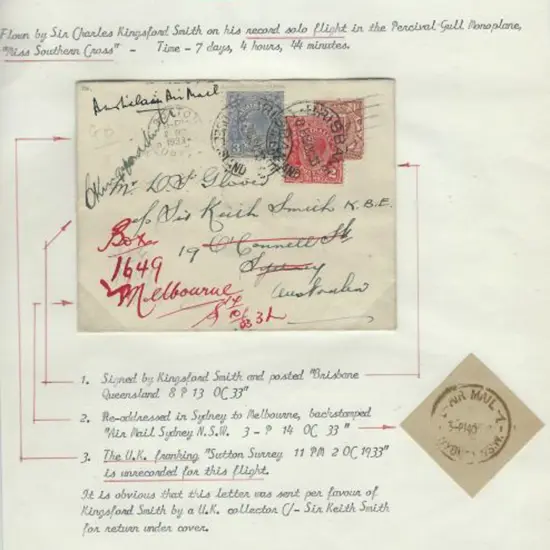 Flown by Sir Charles Kingsford Smith on his record solo flight in the Percival-Gull Monoplane,
"Miss Southern Cross" - Time - 7 days, 4 hours, 44 minutes.
Australian Air Mail
1933
BRISBANE
CKingsford Smith
Mr D. Glover
c/o Sir Keith Smith K.B.E.
Box
19 O'Connell St
1649
Sydney
Melbourne
Australia
1. Signed by Kingsford Smith and posted "Brisbane
Queensland 8 P 13 OC 33"
2. Re-addressed in Sydney to Melbourne, backstamped
"Air Mail Sydney N.S.W. 3 - P 14 OC 33"
3. The U.K. franking "Sutton Surrey 11 PM 2 OC 1933"
is unrecorded for this flight.
It is obvious that this letter was sent per favour of
Kingsford Smith by a U.K. collector C/- Sir Keith Smith
for return under cover.
AIR MAIL